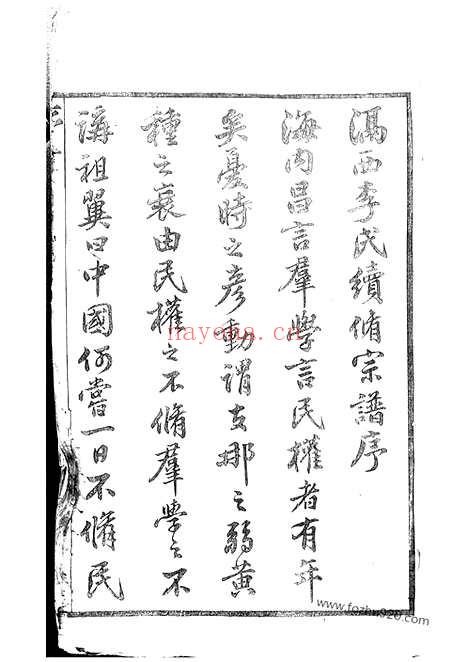 滆西李氏續脩宗譜序
海內昌言羣學言民權者有年
矣憂時之彥動謂支那之弱黃
種之衰由民權之不脩羣學之不
講祖翼曰中國何嘗一日不脩民
nayona.cn
www.fozhu920.com